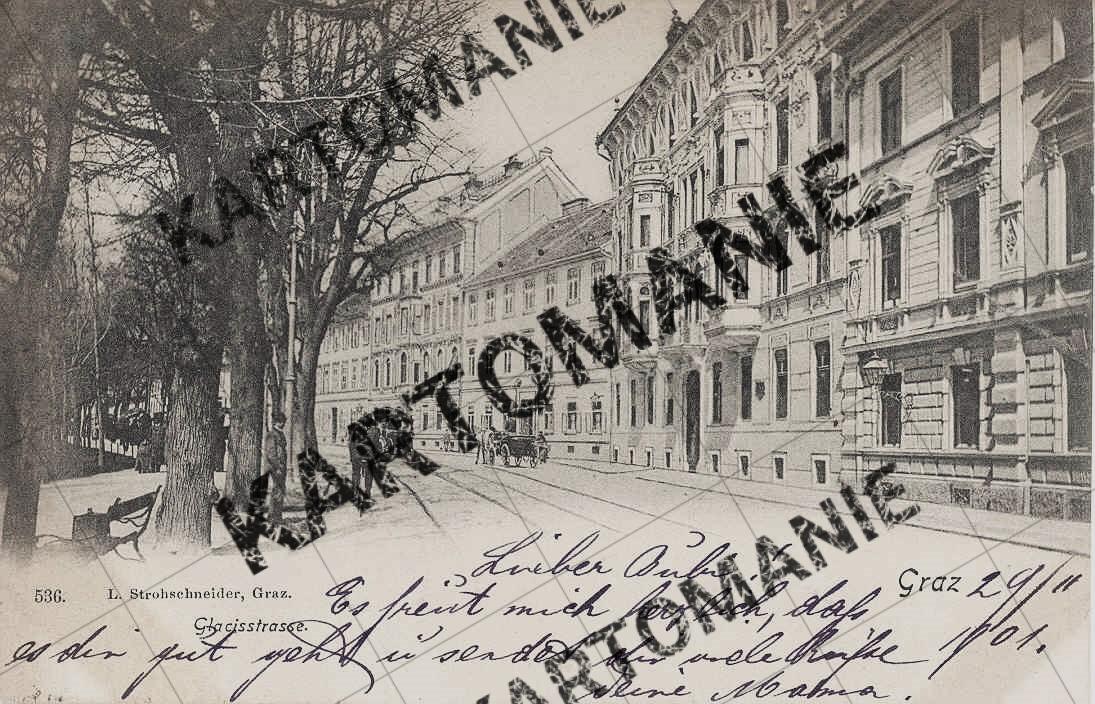 KARTOMANIE
KARTOMANIE
KARTOMANIE
KARTOMANIE
536. L. Strohschneider, Graz.
Glacisstrasse.
Graz 29/11
1901.
Lieber Bubi!
Es freut mich herzlich, daß
es dir gut geht u sendet dir viele Küße
deine Mama.